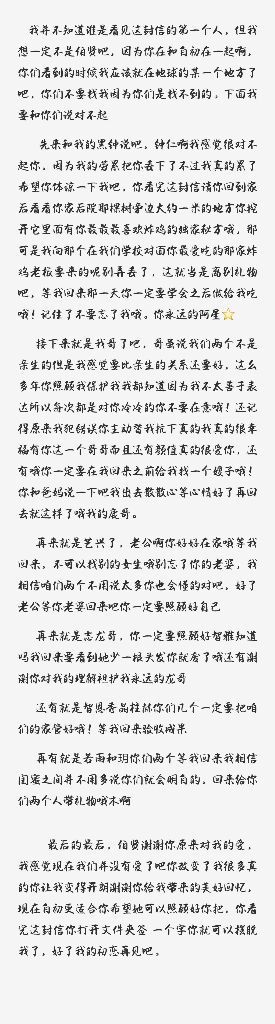 我并不知道谁是看见这封信的第一个人，但我
想一定不是伯贤吧，因为你在和自初在一起啊，
你们看到的时候我应该就在地球的某一个地方了
吧，你们不要找我因为你们是找不到的。下面我
要和你们说对不起
先来和我的黑钟说吧，钟仁啊我感觉很对不
起你，因为我的劳累把你丢下了不过我真的累了
希望你体谅一下我吧，你看完这封信请你回到家
后看看你家后院那棵树旁边大约一米的地方你挖
开它里面有你最最最喜欢炸鸡的独家秘方哦，那
可是我向那个在我们学校对面你最爱吃的那家炸
鸡老板要来的呢别弄丢了，这就当是离别礼物
吧，等我回来那一天你一定要学会之后做给我吃
哦！记住了不要忘了我哦。你永远的阿星⭐
接下来就是我哥了吧，哥虽说我们两个不是
亲生的但是我感觉要比亲生的关系还要好，这么
多年你照顾我保护我我都知道因为我不太善于表
达所以每次都是对你冷冷的你不要在意哦！还记
得原来我犯错误你主动替我抗下真的我真的很幸
福有你这一个哥哥而且还有颜值真的很爱你，还
有哦你一定要在我回来之前给我找一个嫂子哦！
你和爸妈说一下吧我出去散散心等心情好了再回
去就这样了哦我的鹿哥。
再来就是艺兴了，老公啊你好好在家哦等我
回来，不可以找别的女生哦别忘了你的老婆，我
相信咱们两个不用说太多你也会懂的对吧，好了
老公等你老婆回来吧你一定要照顾好自己
再来就是志龙哥，你一定要照顾好智雅知道
吗我回来要看到她少一根头发你就看了哦还有谢
谢你对我的理解袒护我永远的龙哥
还有就是智恩香品桂旅你们几个一定要把咱
们的家管好哦！等我回来验收成果
再有就是若雨和玥你们两个等我回来我相信
闺蜜之间并不用多说你们就会明白的。回来给你
们两个人带礼物哦木啊
最后的最后，伯贤谢谢你原来对我的爱，
我感觉现在我们并没有爱了吧你改变了我很多真
的你让我变得开朗谢谢你给我带来的美好回忆，
现在自初更适合你希望她可以照顾好你把，你看
完这封信你打开文件夹签 一个字你就可以摆脱
我了，好了我的初恋再见吧。